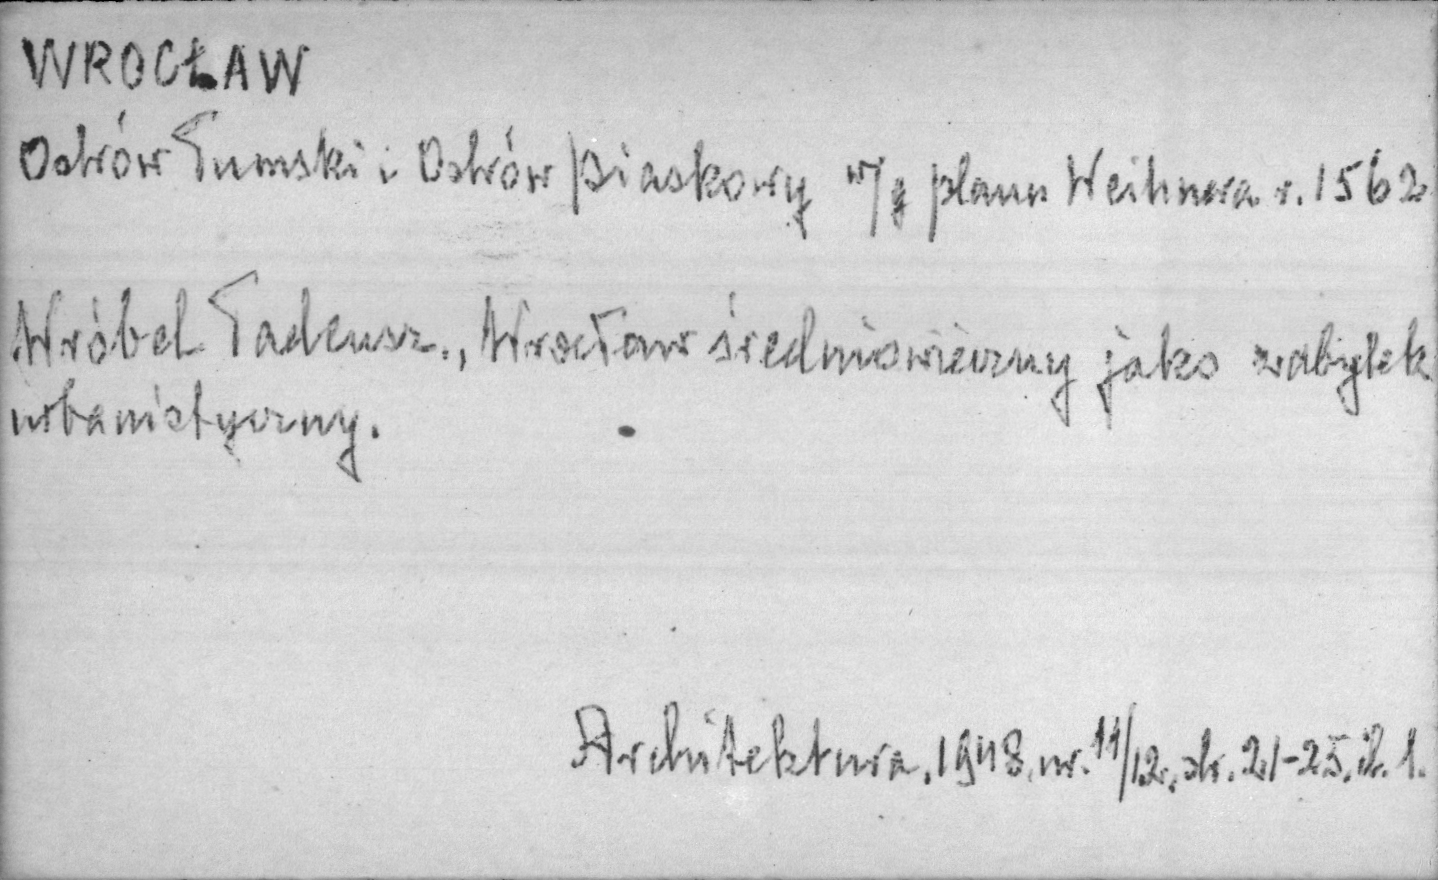 WROCŁAW
Ostrów Tumski i Ostrów Piaskowy w/g planu Weihnera r. 1562
Wróbel Tadeusz., Wrocław średniowieczny jako zabytek
urbanistyczny.
Architektura, 1948, nr. 11/12, str. 21-25, il. 1.